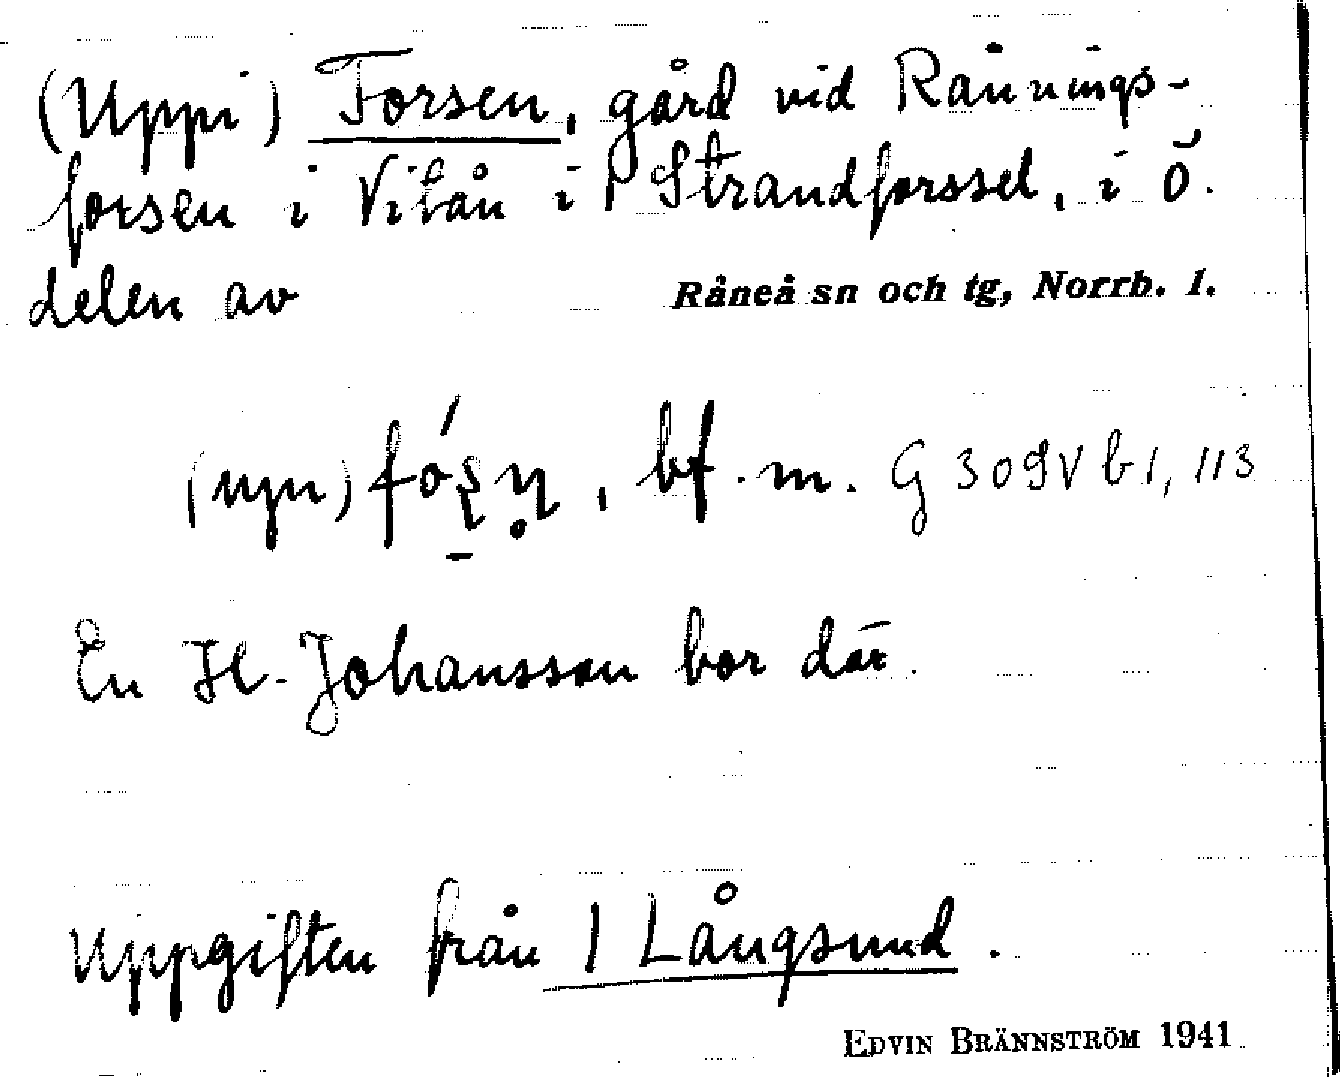 (Uppi) Forsen, gård vid Rånnings-
forsen i Vitån i | Strandforssel, i ö.
delen av Råneå sn och tg, Norrb. l.
bf. m. G 309 V b 1, 113
En H. Johansson bor där.
Uppgiften från | Långsund.
EDVIN BRÄNNSTRÖM 1941